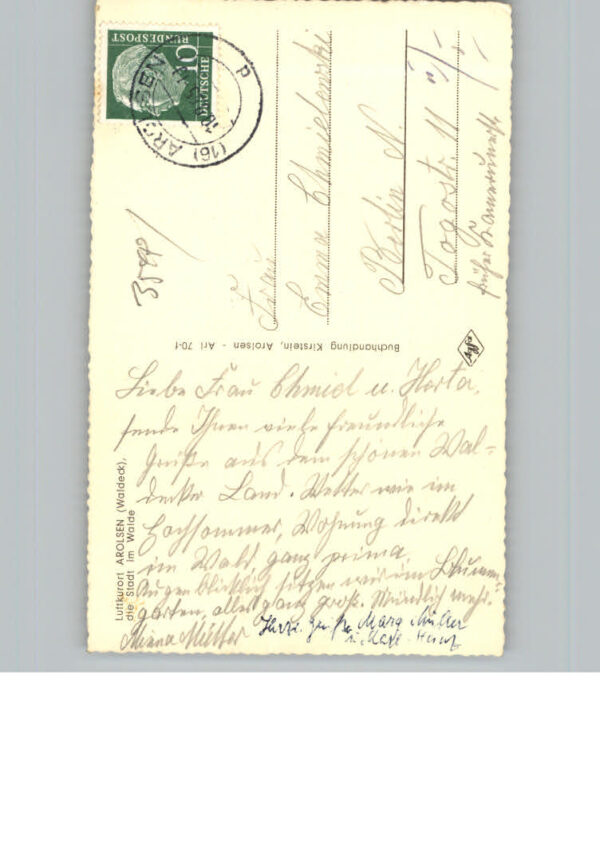 DEUTSCHE
BUNDESPOST
10
(16) AROLSEN
P
Frau
Emma Chmielewski
Berlin N.
Togostr. 11
früher
Buchhandlung Kirstein, Arolsen - Arl 70-f
Luftkurort AROLSEN (Waldeck),
die Stadt im Walde
Liebe Frau Chmiel u. Herta,
sende Ihnen viele freundliche
Grüße aus dem schönen Wal-
decker Land. Wetter wie im
Hochsommer, Wohnung direkt
im Wald ganz prima.
Augenblicklich sitzen wir im Blumen-
garten, alles ganz groß. Mündlich mehr.
Minna Müller
Herzl. Grüße Marg. Müller